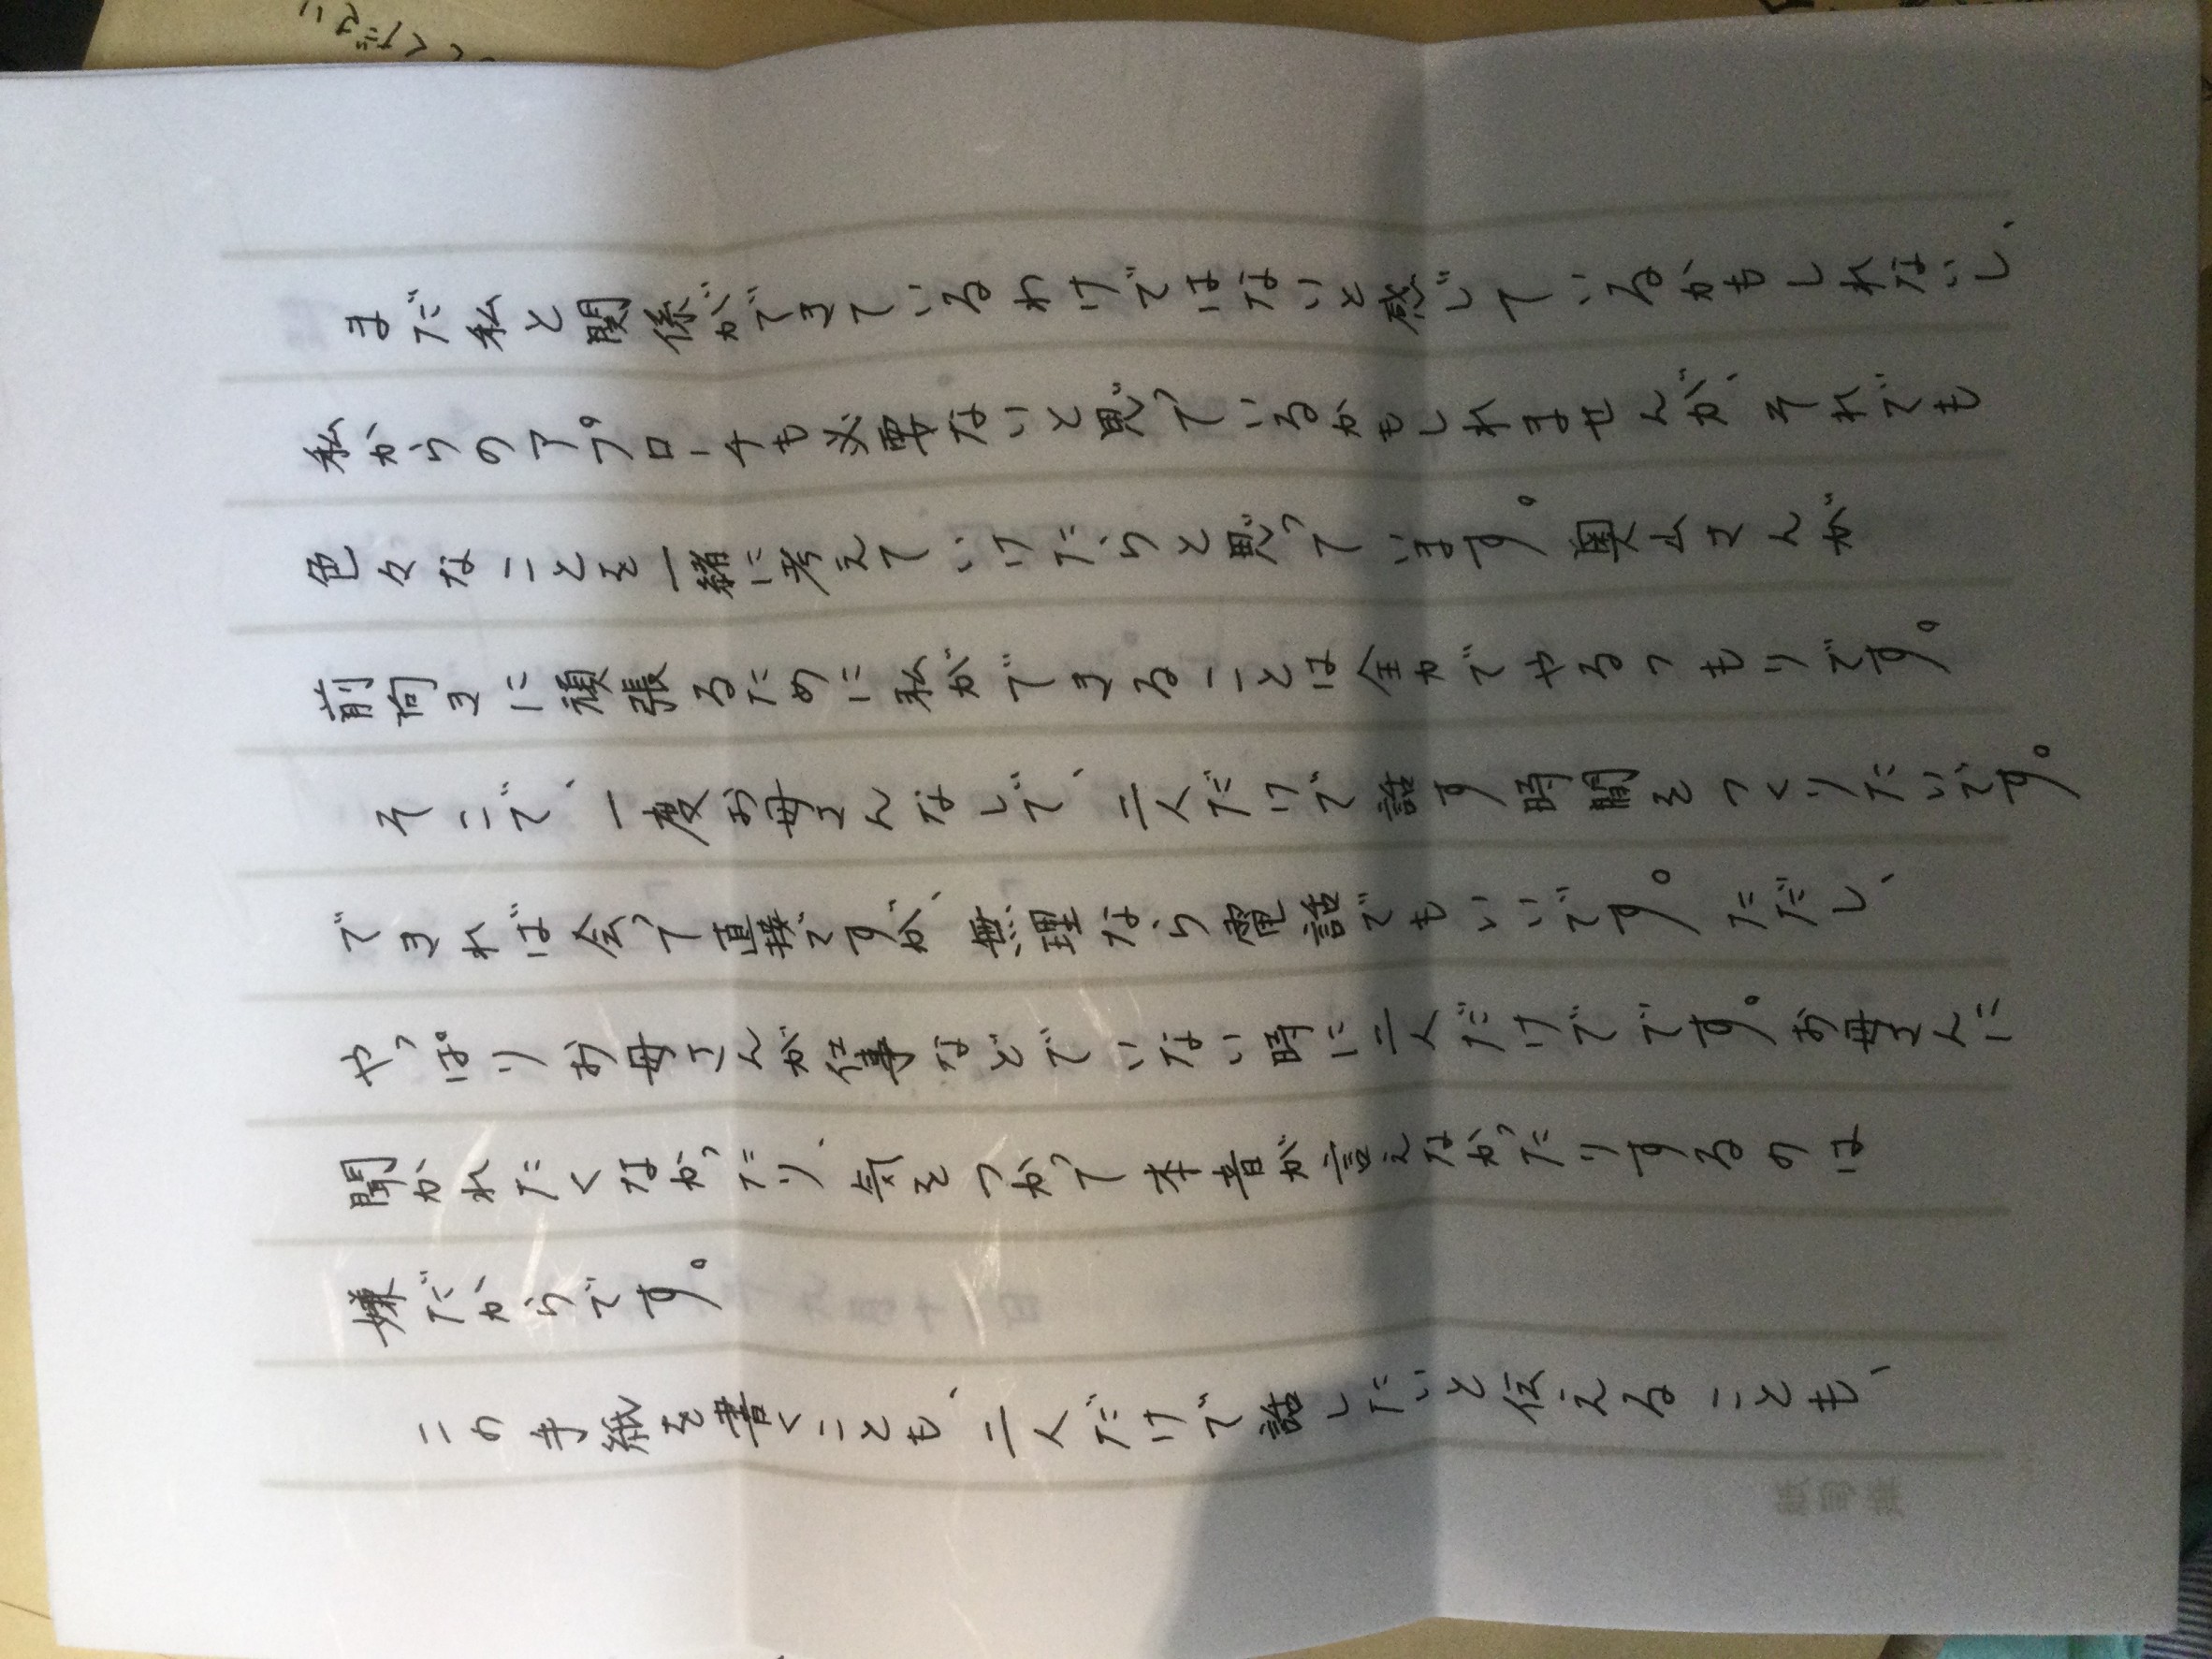 まだ私と関係ができているわけではないと感じているかもしれないし、
私からのアプローチも必要ないと思っているかもしれませんが、それでも
色々なことを一緒に考えていけたらと思っています。奥山さんが
前向きに頑張るために私ができることは全力でやるつもりです。
そこで、一度お母さんなしで、二人だけで話す時間をつくりたいです。
できれば会って直接ですが、無理なら電話でもいいです。ただし、
やっぱりお母さんが仕事などでいない時に二人だけでです。お母さんに
聞かれたくなかったり、気をつかって本音が言えなかったりするのは
嫌だからです。
この手紙を書くことも、二人だけで話したいと伝えることも、
ください